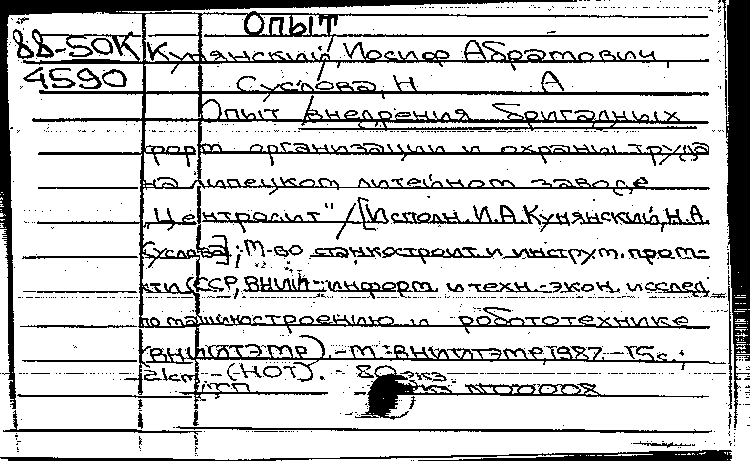 Опыт
88-50К Кунянский, Иосиф Абрамович,
4590 Суслова, Н А
Опыт внедрения бригадных
форм организации и охраны труда
на липецком литейном заводе
"Центролит" / [Исполн. И.А. Кунянский, Н.А.
Суслова]; М-во станкостроит. и инструм. пром-
сти СССР, ВНИИ информ. и техн.-экон. исслед.
по машиностроению и робототехнике
(ВНИИТЭМР). - М.: ВНИИТЭМР, 1987. - 15 с.;
21 см - (НОТ). - 80 экз.
N00008